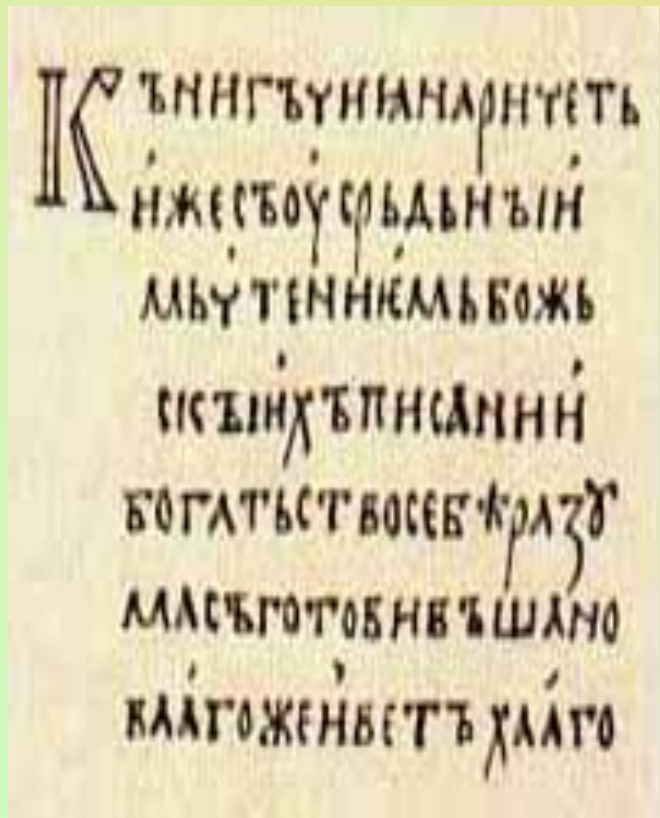 Кънигъчиꙗнаричеть
и́жесъоу̇срьдьнꙑи̇
мьч̇тен̇ие́мьбожь
скꙑи̇хъписании̇
богатьствосебѣразꙋ
масъготовивъшано
вааго́жеи̇ветъхаа́го